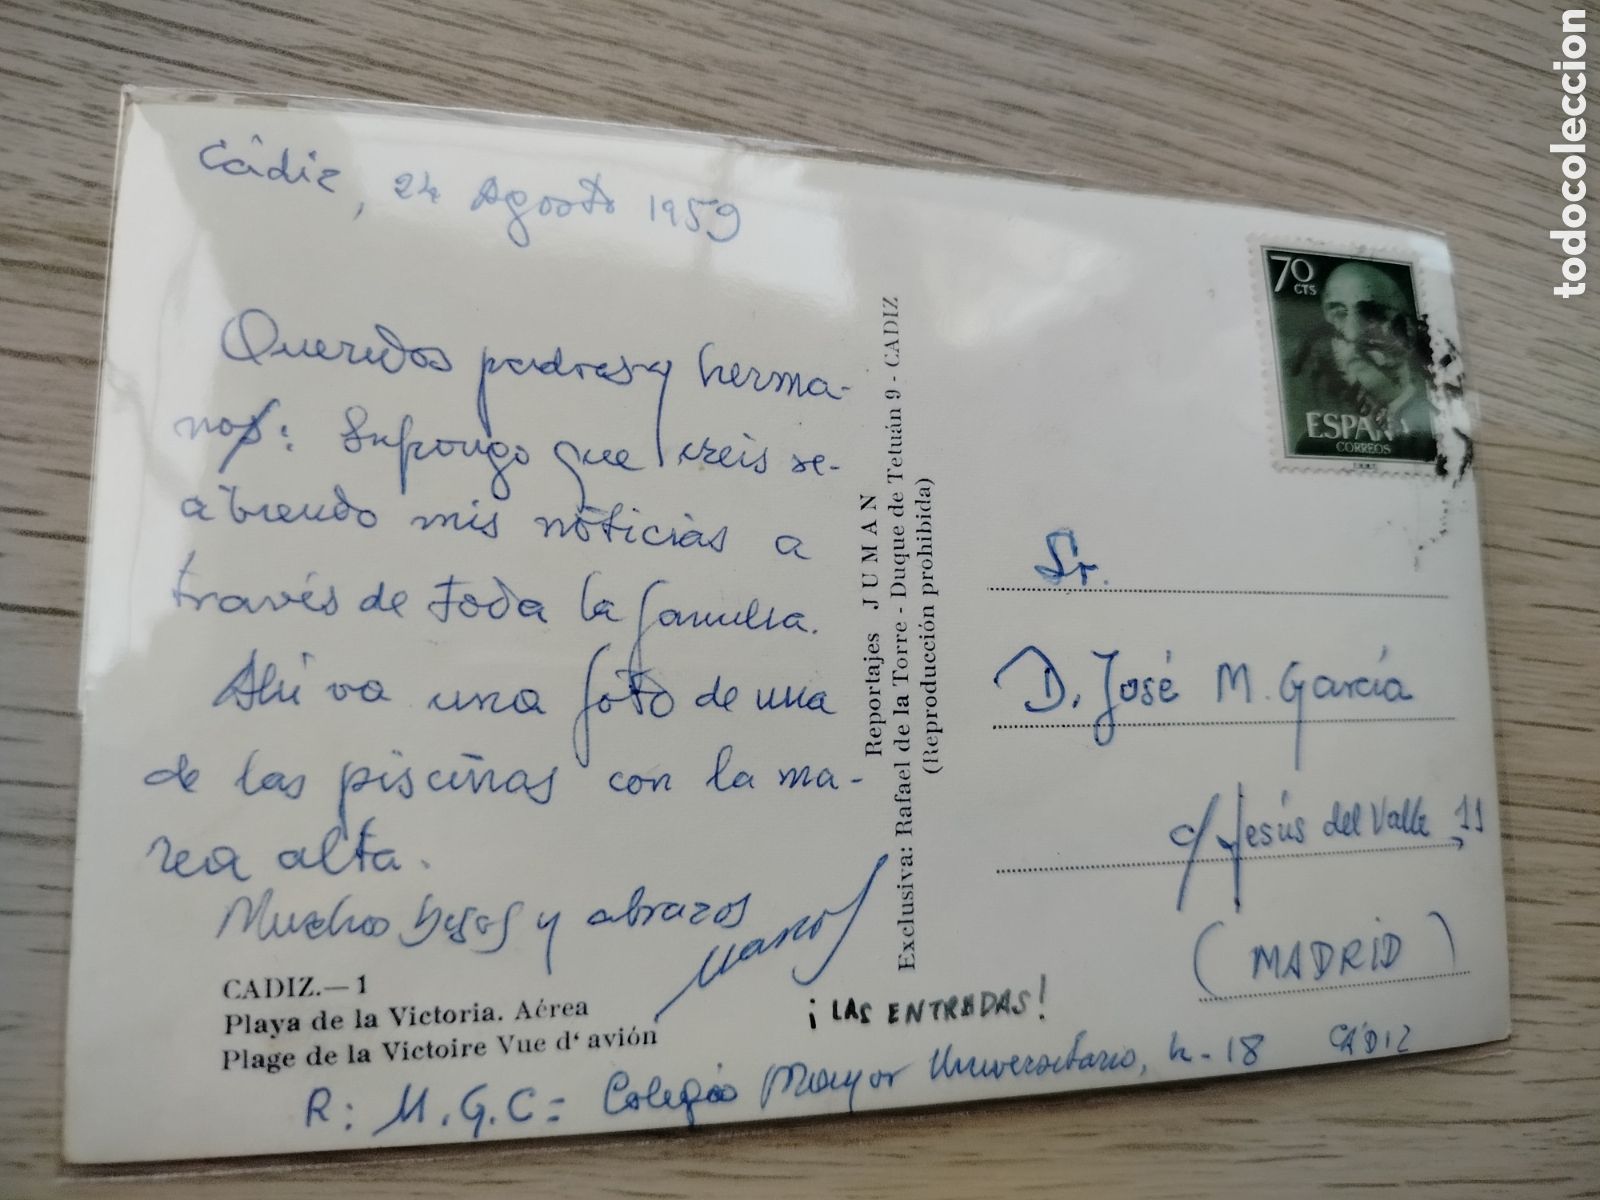 Cádiz, 24 Agosto 1959
Queridos padres y herma-
nos: Supongo que ireis re-
cibiendo mis noticias a
través de toda la familia.
Ahí va una foto de una
de las piscinas con la ma-
rea alta.
Muchos besos y abrazos
CADIZ.—1
Playa de la Victoria. Aérea
Plage de la Victoire Vue d' avión
Reportajes JUMAN
Exclusiva: Rafael de la Torre - Duque de Tetuán 9 - CADIZ
(Reproducción prohibida)
70
CTS
ESPAÑA
CORREOS
Sr.
D. José M. García
c/ Jesús del Valle 11
(MADRID)
¡LAS ENTRADAS!
R: M.G.C= Colegio Mayor Universitario, h-18 CÁDIZ
todocoleccion